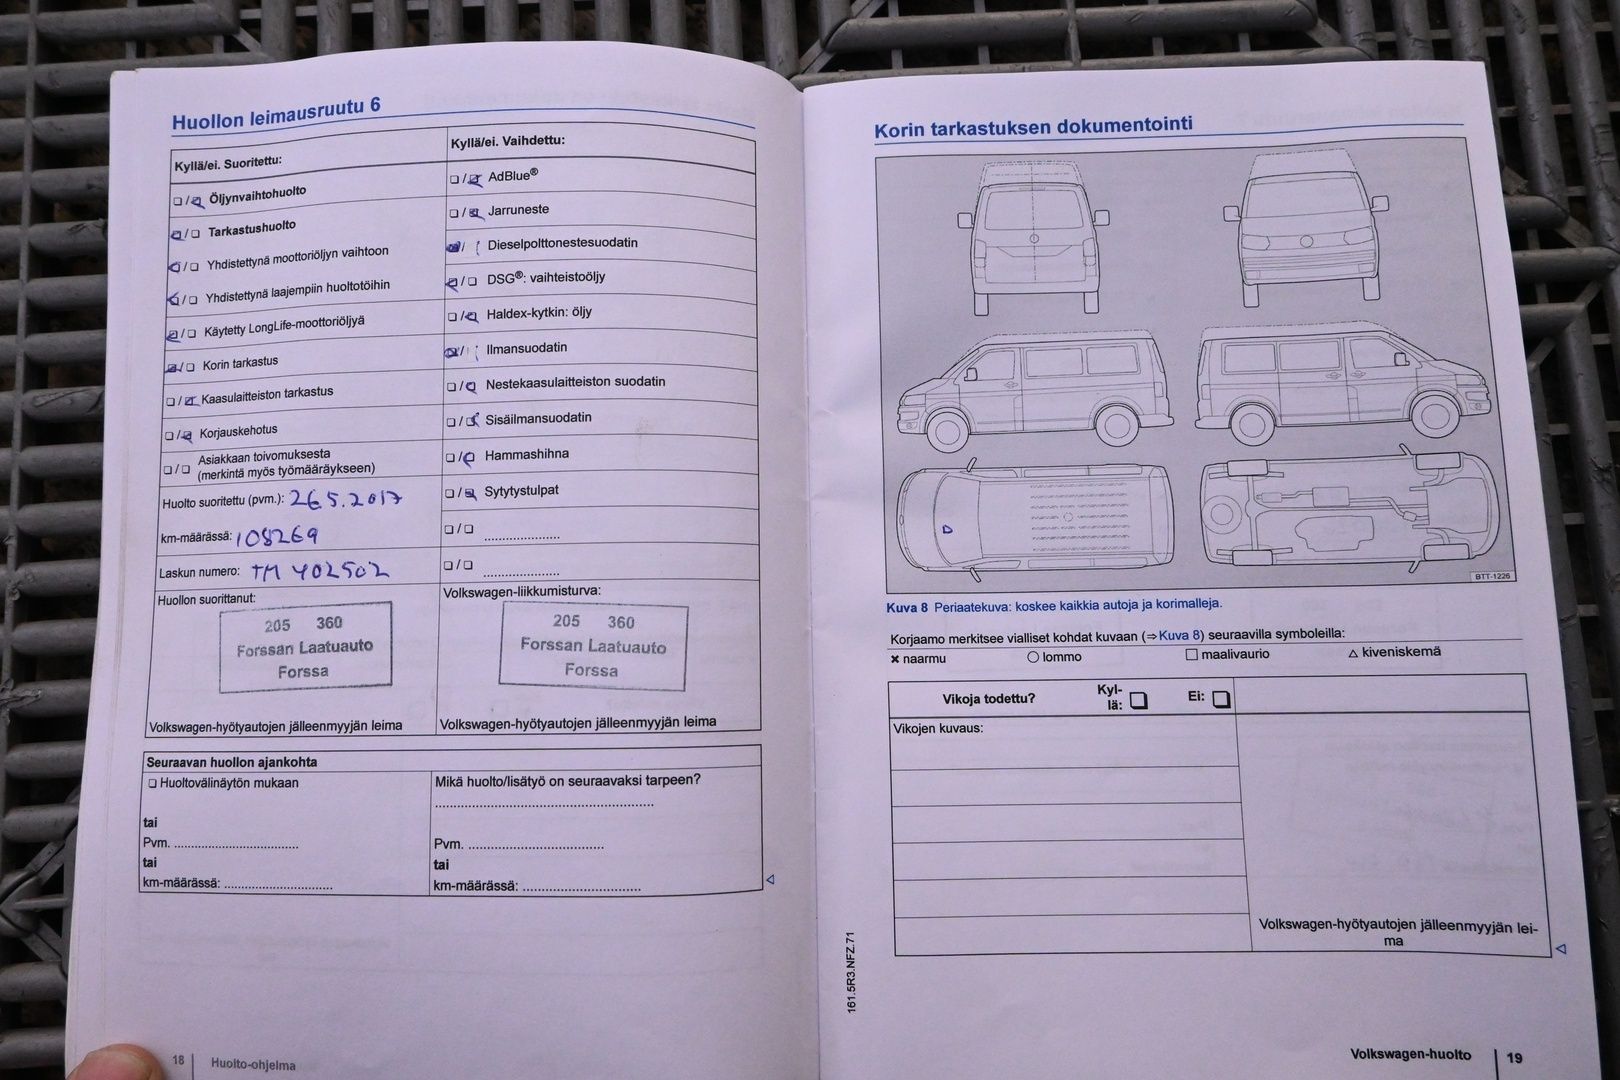 Huollon leimausruutu 6
Kyllä/ei. Suoritettu:
❑/❑ Öljynvaihtohuolto
❑/❑ Tarkastushuolto
❑/❑ Yhdistettynä moottoriöljyn vaihtoon
❑/❑ Yhdistettynä laajempiin huoltotöihin
❑/❑ Käytetty LongLife-moottoriöljyä
❑/❑ Korin tarkastus
❑/❑ Kaasulaitteiston tarkastus
❑/❑ Korjauskehotus
❑/❑ Asiakkaan toivomuksesta
(merkintä myös työmääräykseen)
Huolto suoritettu (pvm.): 26.5.2017
km-määrässä: 108269
Laskun numero: TM 402502
Huollon suorittanut:
205 360
Forssan Laatuauto
Forssa
Volkswagen-hyötyautojen jälleenmyyjän leima
Kyllä/ei. Vaihdettu:
❑/❑ AdBlue®
❑/❑ Jarruneste
❑/❑ Dieselpolttonestesuodatin
❑/❑ DSG®: vaihteistoöljy
❑/❑ Haldex-kytkin: öljy
❑/❑ Ilmansuodatin
❑/❑ Nestekaasulaitteiston suodatin
❑/❑ Sisäilmansuodatin
❑/❑ Hammashihna
❑/❑ Sytytystulpat
❑/❑ ....................
❑/❑ ....................
Volkswagen-liikkumisturva:
205 360
Forssan Laatuauto
Forssa
Volkswagen-hyötyautojen jälleenmyyjän leima
Seuraavan huollon ajankohta
❑ Huoltovälinäytön mukaan
tai
Pvm. ....................
tai
km-määrässä: ....................
Mikä huolto/lisätyö on seuraavaksi tarpeen?
....................
Pvm. ....................
tai
km-määrässä: ....................
18 Huolto-ohjelma
Korin tarkastuksen dokumentointi
BTT-1226
Kuva 8 Periaatekuva: koskee kaikkia autoja ja korimalleja.
Korjaamo merkitsee vialliset kohdat kuvaan (⇒ Kuva 8) seuraavilla symboleilla:
× naarmu ○ lommo □ maalivaurio △ kiveniskemä
Vikoja todettu? Kyl-
lä: ❑ Ei: ❑
Vikojen kuvaus:
Volkswagen-hyötyautojen jälleenmyyjän lei-
ma
161.5R3.NFZ.71
Volkswagen-huolto 19